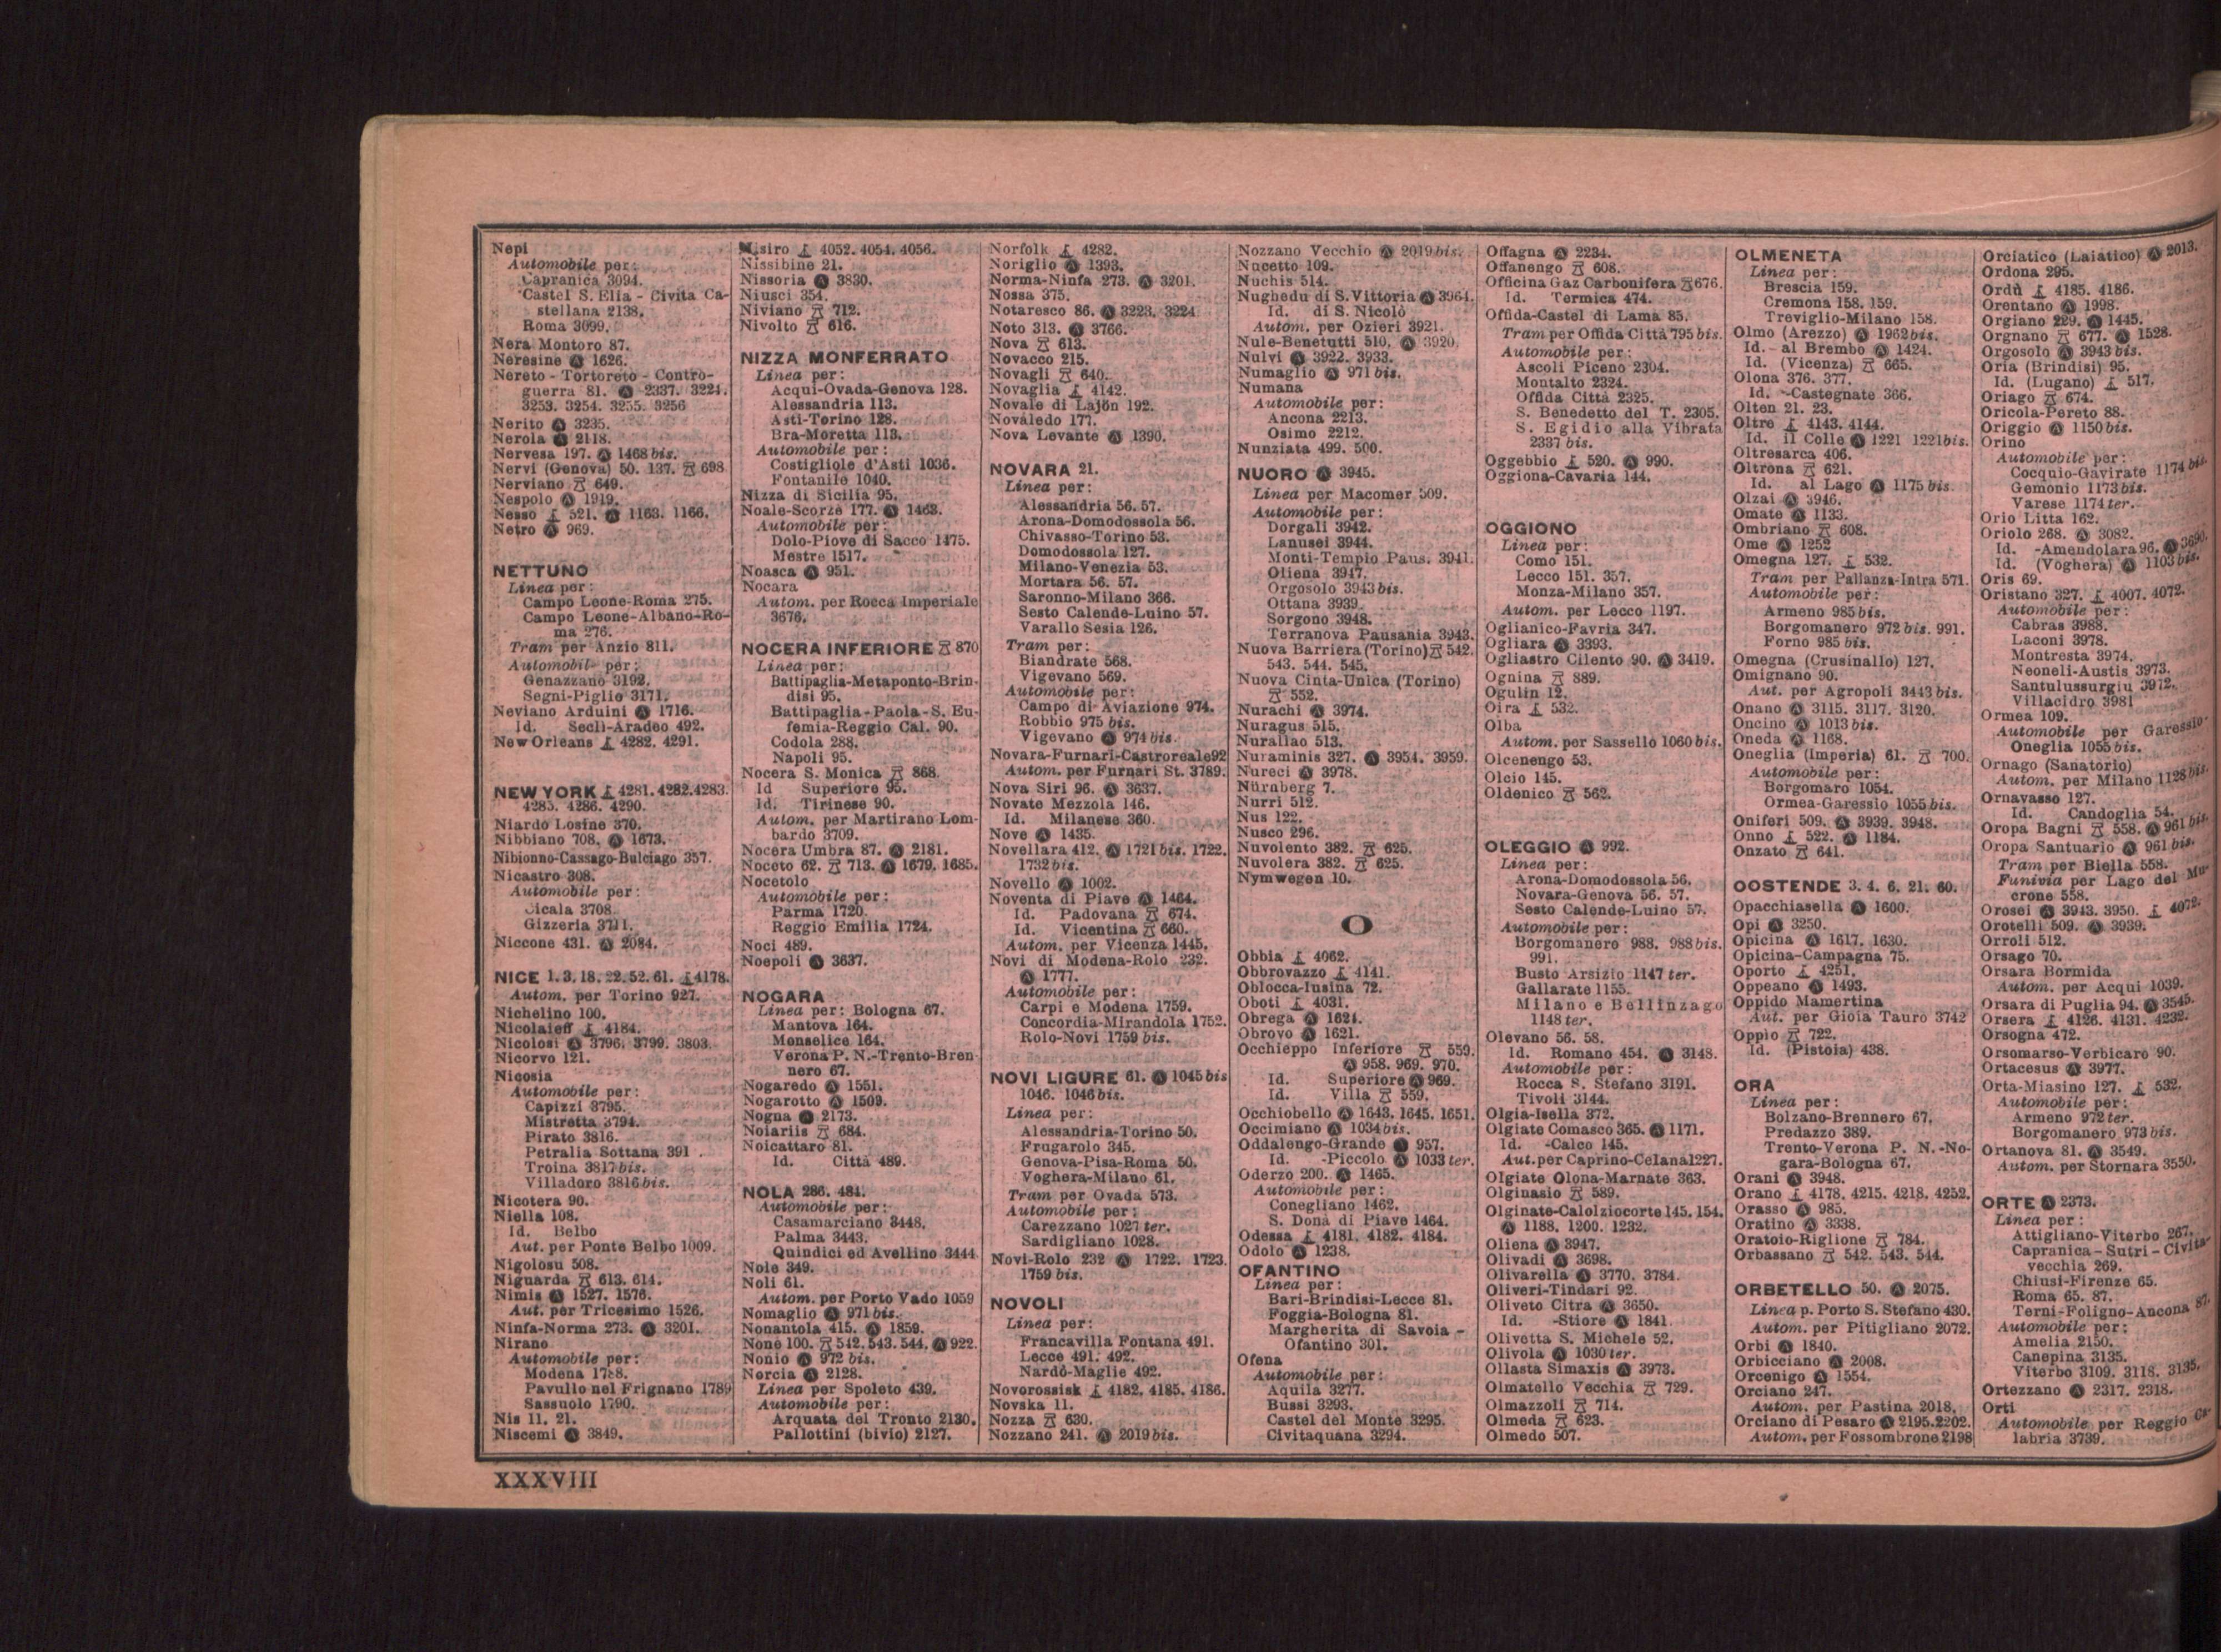 Nepi
Automobile per:
Capranica 3094.
Castel S. Elia - Civita Ca-
stellana 2138.
Roma 3099.
Nera Montoro 87.
Neresine Ⓐ 1626.
Nereto - Tortoreto - Contro-
guerra 81. Ⓐ 2337. 3224.
3253. 3254. 3255. 3256
Nerito Ⓐ 3235.
Nerola Ⓐ 2118.
Nervesa 197. Ⓐ 1468 bis.
Nervi (Genova) 50. 137. 698
Nerviano 649.
Nespolo Ⓐ 1919.
Nesso 521. Ⓐ 1163. 1166.
Netro Ⓐ 969.
NETTUNO
Linea per:
Campo Leone-Roma 275.
Campo Leone-Albano-Ro-
ma 276.
Tram per Anzio 811.
Automobil- per:
Genazzano 3192.
Segni-Piglio 3171.
Neviano Arduini Ⓐ 1716.
Id. Seclì-Aradeo 492.
New Orleans 4282. 4291.
NEW YORK 4281. 4282. 4283.
4285. 4286. 4290.
Niardo Losine 370.
Nibbiano 708. Ⓐ 1673.
Nibionno-Cassago-Bulciago 357.
Nicastro 308.
Automobile per:
Cicala 3708.
Gizzeria 3711.
Niccone 431. Ⓐ 2084.
NICE 1. 3. 18. 22. 52. 61. 4178.
Autom. per Torino 927.
Nichelino 100.
Nicolaieff 4184.
Nicolosi Ⓐ 3796. 3799. 3803.
Nicorvo 121.
Nicosia
Automobile per:
Capizzi 3795.
Mistretta 3794.
Pirato 3816.
Petralia Sottana 391 .
Troina 3817 bis.
Villadoro 3816 bis.
Nicotera 90.
Niella 108.
Id. Belbo
Aut. per Ponte Belbo 1009.
Nigolosu 508.
Niguarda 613. 614.
Nimis Ⓐ 1527. 1576.
Aut. per Tricesimo 1526.
Ninfa-Norma 273. Ⓐ 3201.
Nirano
Automobile per:
Modena 1788.
Pavullo nel Frignano 1789
Sassuolo 1790.
Nis 11. 21.
Niscemi Ⓐ 3849.
Nisiro 4052. 4054. 4056.
Nissibine 21.
Nissoria Ⓐ 3830.
Niusci 354.
Niviano 712.
Nivolto 616.
NIZZA MONFERRATO
Linea per:
Acqui-Ovada-Genova 128.
Alessandria 113.
Asti-Torino 128.
Bra-Moretta 113.
Automobile per:
Costigliole d'Asti 1036.
Fontanile 1040.
Nizza di Sicilia 95.
Noale-Scorzè 177. Ⓐ 1463.
Automobile per:
Dolo-Piove di Sacco 1475.
Mestre 1517.
Noasca Ⓐ 951.
Nocara
Autom. per Rocca Imperiale
3676.
NOCERA INFERIORE 870
Linea per:
Battipaglia-Metaponto-Brin-
disi 95.
Battipaglia-Paola-S. Eu-
femia-Reggio Cal. 90.
Codola 288.
Napoli 95.
Nocera S. Monica 868.
Id Superiore 95.
Id. Tirinese 90.
Autom. per Martirano Lom-
bardo 3709.
Nocera Umbra 87. Ⓐ 2181.
Noceto 62. 713. Ⓐ 1679. 1685.
Nocetolo
Automobile per:
Parma 1720.
Reggio Emilia 1724.
Noci 489.
Noepoli Ⓐ 3637.
NOGARA
Linea per: Bologna 67.
Mantova 164.
Monselice 164.
Verona P. N.-Trento-Bren-
nero 67.
Nogaredo Ⓐ 1551.
Nogarotto Ⓐ 1509.
Nogna Ⓐ 2173.
Noiariis 684.
Noicattaro 81.
Id. Città 489.
NOLA 286. 484.
Automobile per:
Casamarciano 3448.
Palma 3443.
Quindici ed Avellino 3444
Nole 349.
Noli 61.
Autom. per Porto Vado 1059
Nomaglio Ⓐ 971 bis.
Nonantola 415. Ⓐ 1859.
None 100. 542. 543. 544. Ⓐ 922.
Nonio Ⓐ 972 bis.
Norcia Ⓐ 2128.
Linea per Spoleto 439.
Automobile per:
Arquata del Tronto 2130.
Pallottini (bivio) 2127.
Norfolk 4282.
Noriglio Ⓐ 1393.
Norma-Ninfa 273. Ⓐ 3201.
Nossa 375.
Notaresco 86. Ⓐ 3223. 3224
Noto 313. Ⓐ 3766.
Nova 613.
Novacco 215.
Novagli 640.
Novaglia 4142.
Novale di Lajon 192.
Novaledo 177.
Nova Levante Ⓐ 1390.
NOVARA 21.
Linea per:
Alessandria 56. 57.
Arona-Domodossola 56.
Chivasso-Torino 53.
Domodossola 127.
Milano-Venezia 53.
Mortara 56. 57.
Saronno-Milano 366.
Sesto Calende-Luino 57.
Varallo Sesia 126.
Tram per:
Biandrate 568.
Vigevano 569.
Automobile per:
Campo di Aviazione 974.
Robbio 975 bis.
Vigevano Ⓐ 974 bis.
Novara-Furnari-Castroreale 92
Autom. per Furnari St. 3789.
Nova Siri 96. Ⓐ 3637.
Novate Mezzola 146.
Id. Milanese 360.
Nove Ⓐ 1435.
Novellara 412. Ⓐ 1721 bis. 1722.
1732 bis.
Novello Ⓐ 1002.
Noventa di Piave Ⓐ 1464.
Id. Padovana 674.
Id. Vicentina 660.
Autom. per Vicenza 1445.
Novi di Modena-Rolo 232.
Ⓐ 1777.
Automobile per:
Carpi e Modena 1759.
Concordia-Mirandola 1752.
Rolo-Novi 1759 bis.
NOVI LIGURE 61. Ⓐ 1045 bis
1046. 1046 bis.
Linea per:
Alessandria-Torino 50.
Frugarolo 345.
Genova-Pisa-Roma 50.
Voghera-Milano 61.
Tram per Ovada 573.
Automobile per:
Carezzano 1027 ter.
Sardigliano 1028.
Novi-Rolo 232 Ⓐ 1722. 1723.
1759 bis.
NOVOLI
Linea per:
Francavilla Fontana 491.
Lecce 491. 492.
Nardò-Maglie 492.
Novorossisk 4182. 4185. 4186.
Novska 11.
Nozza 630.
Nozzano 241. Ⓐ 2019 bis.
Nozzano Vecchio Ⓐ 2019 bis.
Nucetto 109.
Nuchis 514.
Nughedu di S. Vittoria Ⓐ 3964.
Id. di S. Nicolò
Autom. per Ozieri 3921.
Nule-Benetutti 510. Ⓐ 3920.
Nulvi Ⓐ 3922. 3933.
Numaglio Ⓐ 971 bis.
Numana
Automobile per:
Ancona 2213.
Osimo 2212.
Nunziata 499. 500.
NUORO Ⓐ 3945.
Linea per Macomer 509.
Automobile per:
Dorgali 3942.
Lanusei 3944.
Monti-Tempio Paus. 3941.
Oliena 3947.
Orgosolo 3943 bis.
Ottana 3939.
Sorgono 3948.
Terranova Pausania 3943.
Nuova Barriera (Torino) 542.
543. 544. 545.
Nuova Cinta-Unica (Torino)
552.
Nurachi Ⓐ 3974.
Nuragus 515.
Nurallao 513.
Nuraminis 327. Ⓐ 3954. 3959.
Nureci Ⓐ 3978.
Nürnberg 7.
Nurri 512.
Nus 122.
Nusco 296.
Nuvolento 382. 625.
Nuvolera 382. 625.
Nymwegen 10.
O
Obbia 4062.
Obbrovazzo 4141.
Oblocca-Iusina 72.
Oboti 4031.
Obrega Ⓐ 1624.
Obrovo Ⓐ 1621.
Occhieppo Inferiore 559.
Ⓐ 958. 969. 970.
Id. Superiore Ⓐ 969.
Id. Villa 559.
Occhiobello Ⓐ 1643. 1645. 1651.
Occimiano Ⓐ 1034 bis.
Oddalengo-Grande Ⓐ 957.
Id. -Piccolo Ⓐ 1033 ter.
Oderzo 200. Ⓐ 1465.
Automobile per:
Conegliano 1462.
S. Donà di Piave 1464.
Odessa 4181. 4182. 4184.
Odolo Ⓐ 1238.
OFANTINO
Linea per:
Bari-Brindisi-Lecce 81.
Foggia-Bologna 81.
Margherita di Savoia -
Ofantino 301.
Ofena
Automobile per:
Aquila 3277.
Bussi 3293.
Castel del Monte 3295.
Civitaquana 3294.
Offagna Ⓐ 2234.
Offanengo 608.
Officina Gaz Carbonifera 676.
Id. Termica 474.
Offida-Castel di Lama 85.
Tram per Offida Città 795 bis.
Automobile per:
Ascoli Piceno 2304.
Montalto 2324.
Offida Città 2325.
S. Benedetto del T. 2305.
S. Egidio alla Vibrata
2337 bis.
Oggebbio 520. Ⓐ 990.
Oggiona-Cavaria 144.
OGGIONO
Linea per:
Como 151.
Lecco 151. 357.
Monza-Milano 357.
Autom. per Lecco 1197.
Oglianico-Favria 347.
Ogliara Ⓐ 3393.
Ogliastro Cilento 90. Ⓐ 3419.
Ognina 889.
Ogulin 12.
Oira 532.
Olba
Autom. per Sassello 1060 bis.
Olcenengo 53.
Olcio 145.
Oldenico 562.
OLEGGIO Ⓐ 992.
Linea per:
Arona-Domodossola 56.
Novara-Genova 56. 57.
Sesto Calende-Luino 57.
Automobile per:
Borgomanero 988. 988 bis.
991.
Busto Arsizio 1147 ter.
Gallarate 1155.
Milano e Bellinzago
1148 ter.
Olevano 56. 58.
Id. Romano 454. Ⓐ 3148.
Automobile per:
Rocca S. Stefano 3191.
Tivoli 3144.
Olgia-Isella 372.
Olgiate Comasco 365. Ⓐ 1171.
Id. -Calco 145.
Aut. per Caprino-Celana 1227.
Olgiate Olona-Marnate 363.
Olginasio 589.
Olginate-Calolziocorte 145. 154.
Ⓐ 1188. 1200. 1232.
Oliena Ⓐ 3947.
Olivadi Ⓐ 3698.
Olivarella Ⓐ 3770. 3784.
Oliveri-Tindari 92.
Oliveto Citra Ⓐ 3650.
Id. -Stiore Ⓐ 1841.
Olivetta S. Michele 52.
Olivola Ⓐ 1030 ter.
Ollasta Simaxis Ⓐ 3973.
Olmatello Vecchia 729.
Olmazzoli 714.
Olmeda 623.
Olmedo 507.
OLMENETA
Linea per:
Brescia 159.
Cremona 158. 159.
Treviglio-Milano 158.
Olmo (Arezzo) Ⓐ 1962 bis.
Id. - al Brembo Ⓐ 1424.
Id. (Vicenza) 665.
Olona 376. 377.
Id. -Castegnate 366.
Olten 21. 23.
Oltre 4143. 4144.
Id. il Colle Ⓐ 1221 1221 bis.
Oltresarca 406.
Oltrona 621.
Id. al Lago Ⓐ 1175 bis.
Olzai Ⓐ 3946.
Omate Ⓐ 1133.
Ombriano 608.
Ome Ⓐ 1252
Omegna 127. 532.
Tram per Pallanza-Intra 571.
Automobile per:
Armeno 985 bis.
Borgomanero 972 bis. 991.
Forno 985 bis.
Omegna (Crusinallo) 127.
Omignano 90.
Aut. per Agropoli 3443 bis.
Onano Ⓐ 3115. 3117. 3120.
Oncino Ⓐ 1013 bis.
Oneda Ⓐ 1168.
Oneglia (Imperia) 61. 700.
Automobile per:
Borgomaro 1054.
Ormea-Garessio 1055 bis.
Oniferi 509. Ⓐ 3939. 3948.
Onno 522. Ⓐ 1184.
Onzato 641.
OOSTENDE 3. 4. 6. 21. 60.
Opacchiasella Ⓐ 1600.
Opi Ⓐ 3250.
Opicina Ⓐ 1617. 1630.
Opicina-Campagna 75.
Oporto 4251.
Oppeano Ⓐ 1493.
Oppido Mamertina
Aut. per Gioia Tauro 3742
Oppio 722.
Id. (Pistoia) 438.
ORA
Linea per:
Bolzano-Brennero 67.
Predazzo 389.
Trento-Verona P. N.-No-
gara-Bologna 67.
Orani Ⓐ 3948.
Orano 4178. 4215. 4218. 4252.
Orasso Ⓐ 985.
Oratino Ⓐ 3338.
Oratoio-Riglione 784.
Orbassano 542. 543. 544.
ORBETELLO 50. Ⓐ 2075.
Linea p. Porto S. Stefano 430.
Autom. per Pitigliano 2072.
Orbi Ⓐ 1840.
Orbicciano Ⓐ 2008.
Orcenigo Ⓐ 1554.
Orciano 247.
Autom. per Pastina 2018.
Orciano di Pesaro Ⓐ 2195. 2202.
Autom. per Fossombrone 2198
Orciatico (Laiatico) Ⓐ 2013.
Ordona 295.
Ordù 4185. 4186.
Orentano Ⓐ 1998.
Orgiano 229. Ⓐ 1445.
Orgnano 677. Ⓐ 1528.
Orgosolo Ⓐ 3943 bis.
Oria (Brindisi) 95.
Id. (Lugano) 517.
Oriago 674.
Oricola-Pereto 88.
Origgio Ⓐ 1150 bis.
Orino
Automobile per:
Cocquio-Gavirate 1174 bis.
Gemonio 1173 bis.
Varese 1174 ter.
Orio Litta 162.
Oriolo 268. Ⓐ 3082.
Id. -Amendolara 96. Ⓐ 3690.
Id. (Voghera) Ⓐ 1103 bis.
Oris 69.
Oristano 327. 4007. 4072.
Automobile per:
Cabras 3988.
Laconi 3978.
Montresta 3974.
Neoneli-Austis 3973.
Santulussurgiu 3972.
Villacidro 3981
Ormea 109.
Automobile per Garessio-
Oneglia 1055 bis.
Ornago (Sanatorio)
Autom. per Milano 1128 bis.
Ornavasso 127.
Id. Candoglia 54.
Oropa Bagni 558. Ⓐ 961 bis.
Oropa Santuario Ⓐ 961 bis.
Tram per Biella 558.
Funivia per Lago del Mu-
crone 558.
Orosei Ⓐ 3943. 3950. 4072.
Orotelli 509. Ⓐ 3939.
Orroli 512.
Orsago 70.
Orsara Bormida
Autom. per Acqui 1039.
Orsara di Puglia 94. Ⓐ 3545.
Orsera 4126. 4131. 4232.
Orsogna 472.
Orsomarso-Verbicaro 90.
Ortacesus Ⓐ 3977.
Orta-Miasino 127. 532.
Automobile per:
Armeno 972 ter.
Borgomanero 973 bis.
Ortanova 81. Ⓐ 3549.
Autom. per Stornara 3550.
ORTE Ⓐ 2373.
Linea per:
Attigliano-Viterbo 267.
Capranica - Sutri - Civita-
vecchia 269.
Chiusi-Firenze 65.
Roma 65. 87.
Terni-Foligno-Ancona 87.
Automobile per:
Amelia 2150.
Canepina 3135.
Viterbo 3109. 3118. 3135.
Ortezzano Ⓐ 2317. 2318.
Orti
Automobile per Reggio Ca-
labria 3739.
XXXVIII